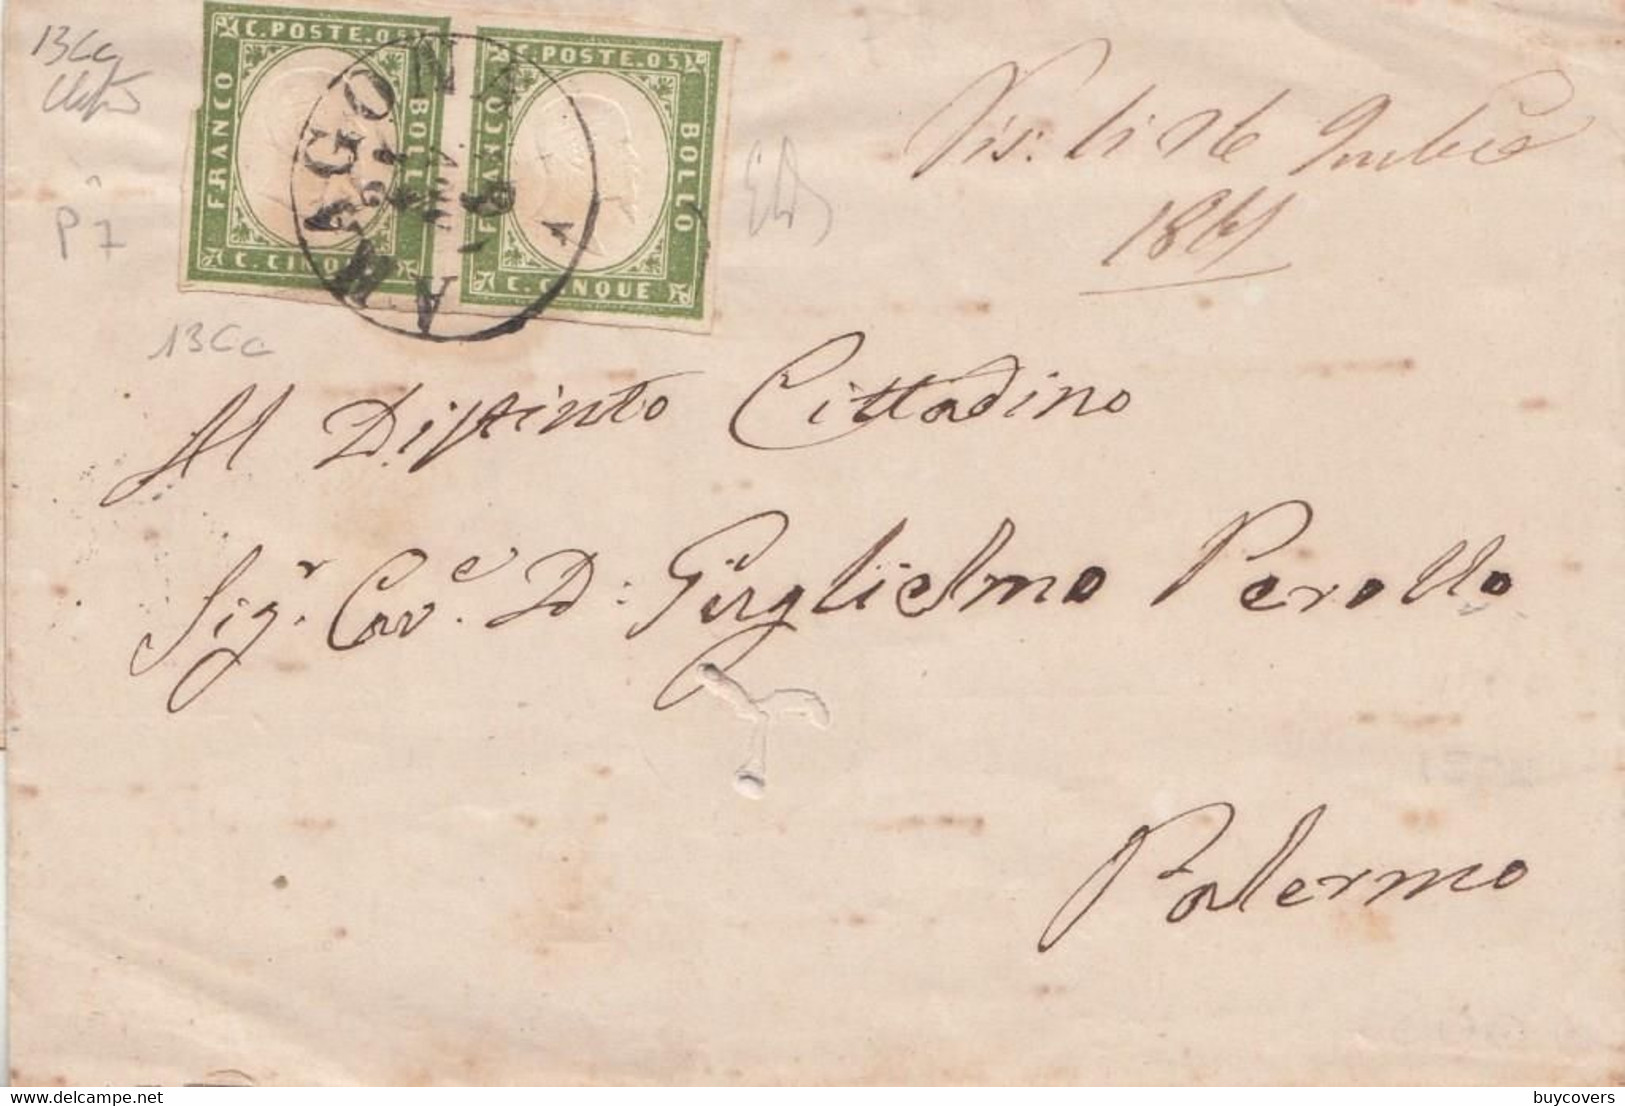 13Cc
P 7
C. POSTE. 05
FRANCO
BOLLO
C. CINQUE
C. POSTE. 05
FRANCO
BOLLO
C. CINQUE
ARAGONA
13Cc
1861
Al Distinto Cittadino
Sig.r Cav.e D: Guglielmo Perollo
Palermo
delcampe.net
buycovers